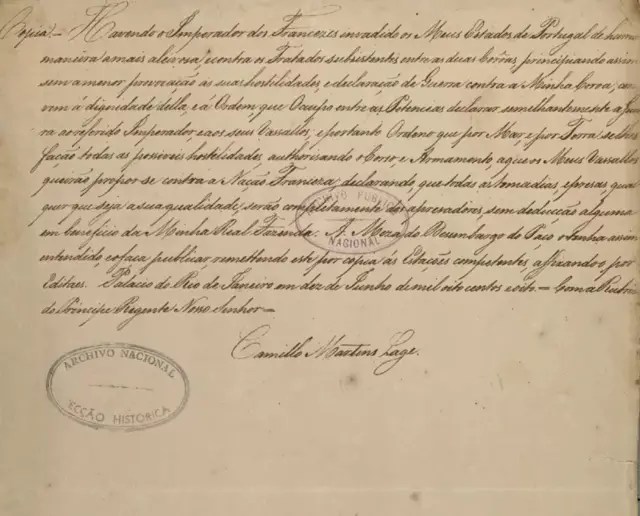 Copia.— Havendo o Imperador dos Francezes invadido os Meus Estados de Portugal de huma
maneira a mais aleivosa, e contra os Tratados subsistentes entre as duas Corôas, principiando assim
sem a menor provocação as suas hostilidades, e declaração de Guerra contra a Minha Coroa; con
vem á dignidade della, e á Ordem, que Occupo entre as Potencias declarar semilhantemente a Guer
ra ao referido Imperador, e aos seus Vassallos; e portanto Ordeno que por Mar, e por Terra se lhes
fação todas as possiveis hostilidades, authorizando o Corso e Armamento, a que os Meus Vassallos
queirão propor-se contra a Nação Franceza; declarando, que todas as tomadias, e presas, qual
quer que seja a sua qualidade, serão completamente dos apresadores, sem deducção alguma
em beneficio da Minha Real Fazenda. A Meza do Desembargo do Paço o tenha assim
entendido, e o faça publicar, remettendo este por copia ás Estações competentes, affixando-o por
Editaes. Palacio do Rio de Janeiro em dez de Junho de mil oito centos e oito.— Com a Rubrica
do Principe Regente Nosso Senhor—
Camillo Martens Lage.
PUBLICO
NACIONAL
ARCHIVO NACIONAL
SECÇÃO HISTORICA